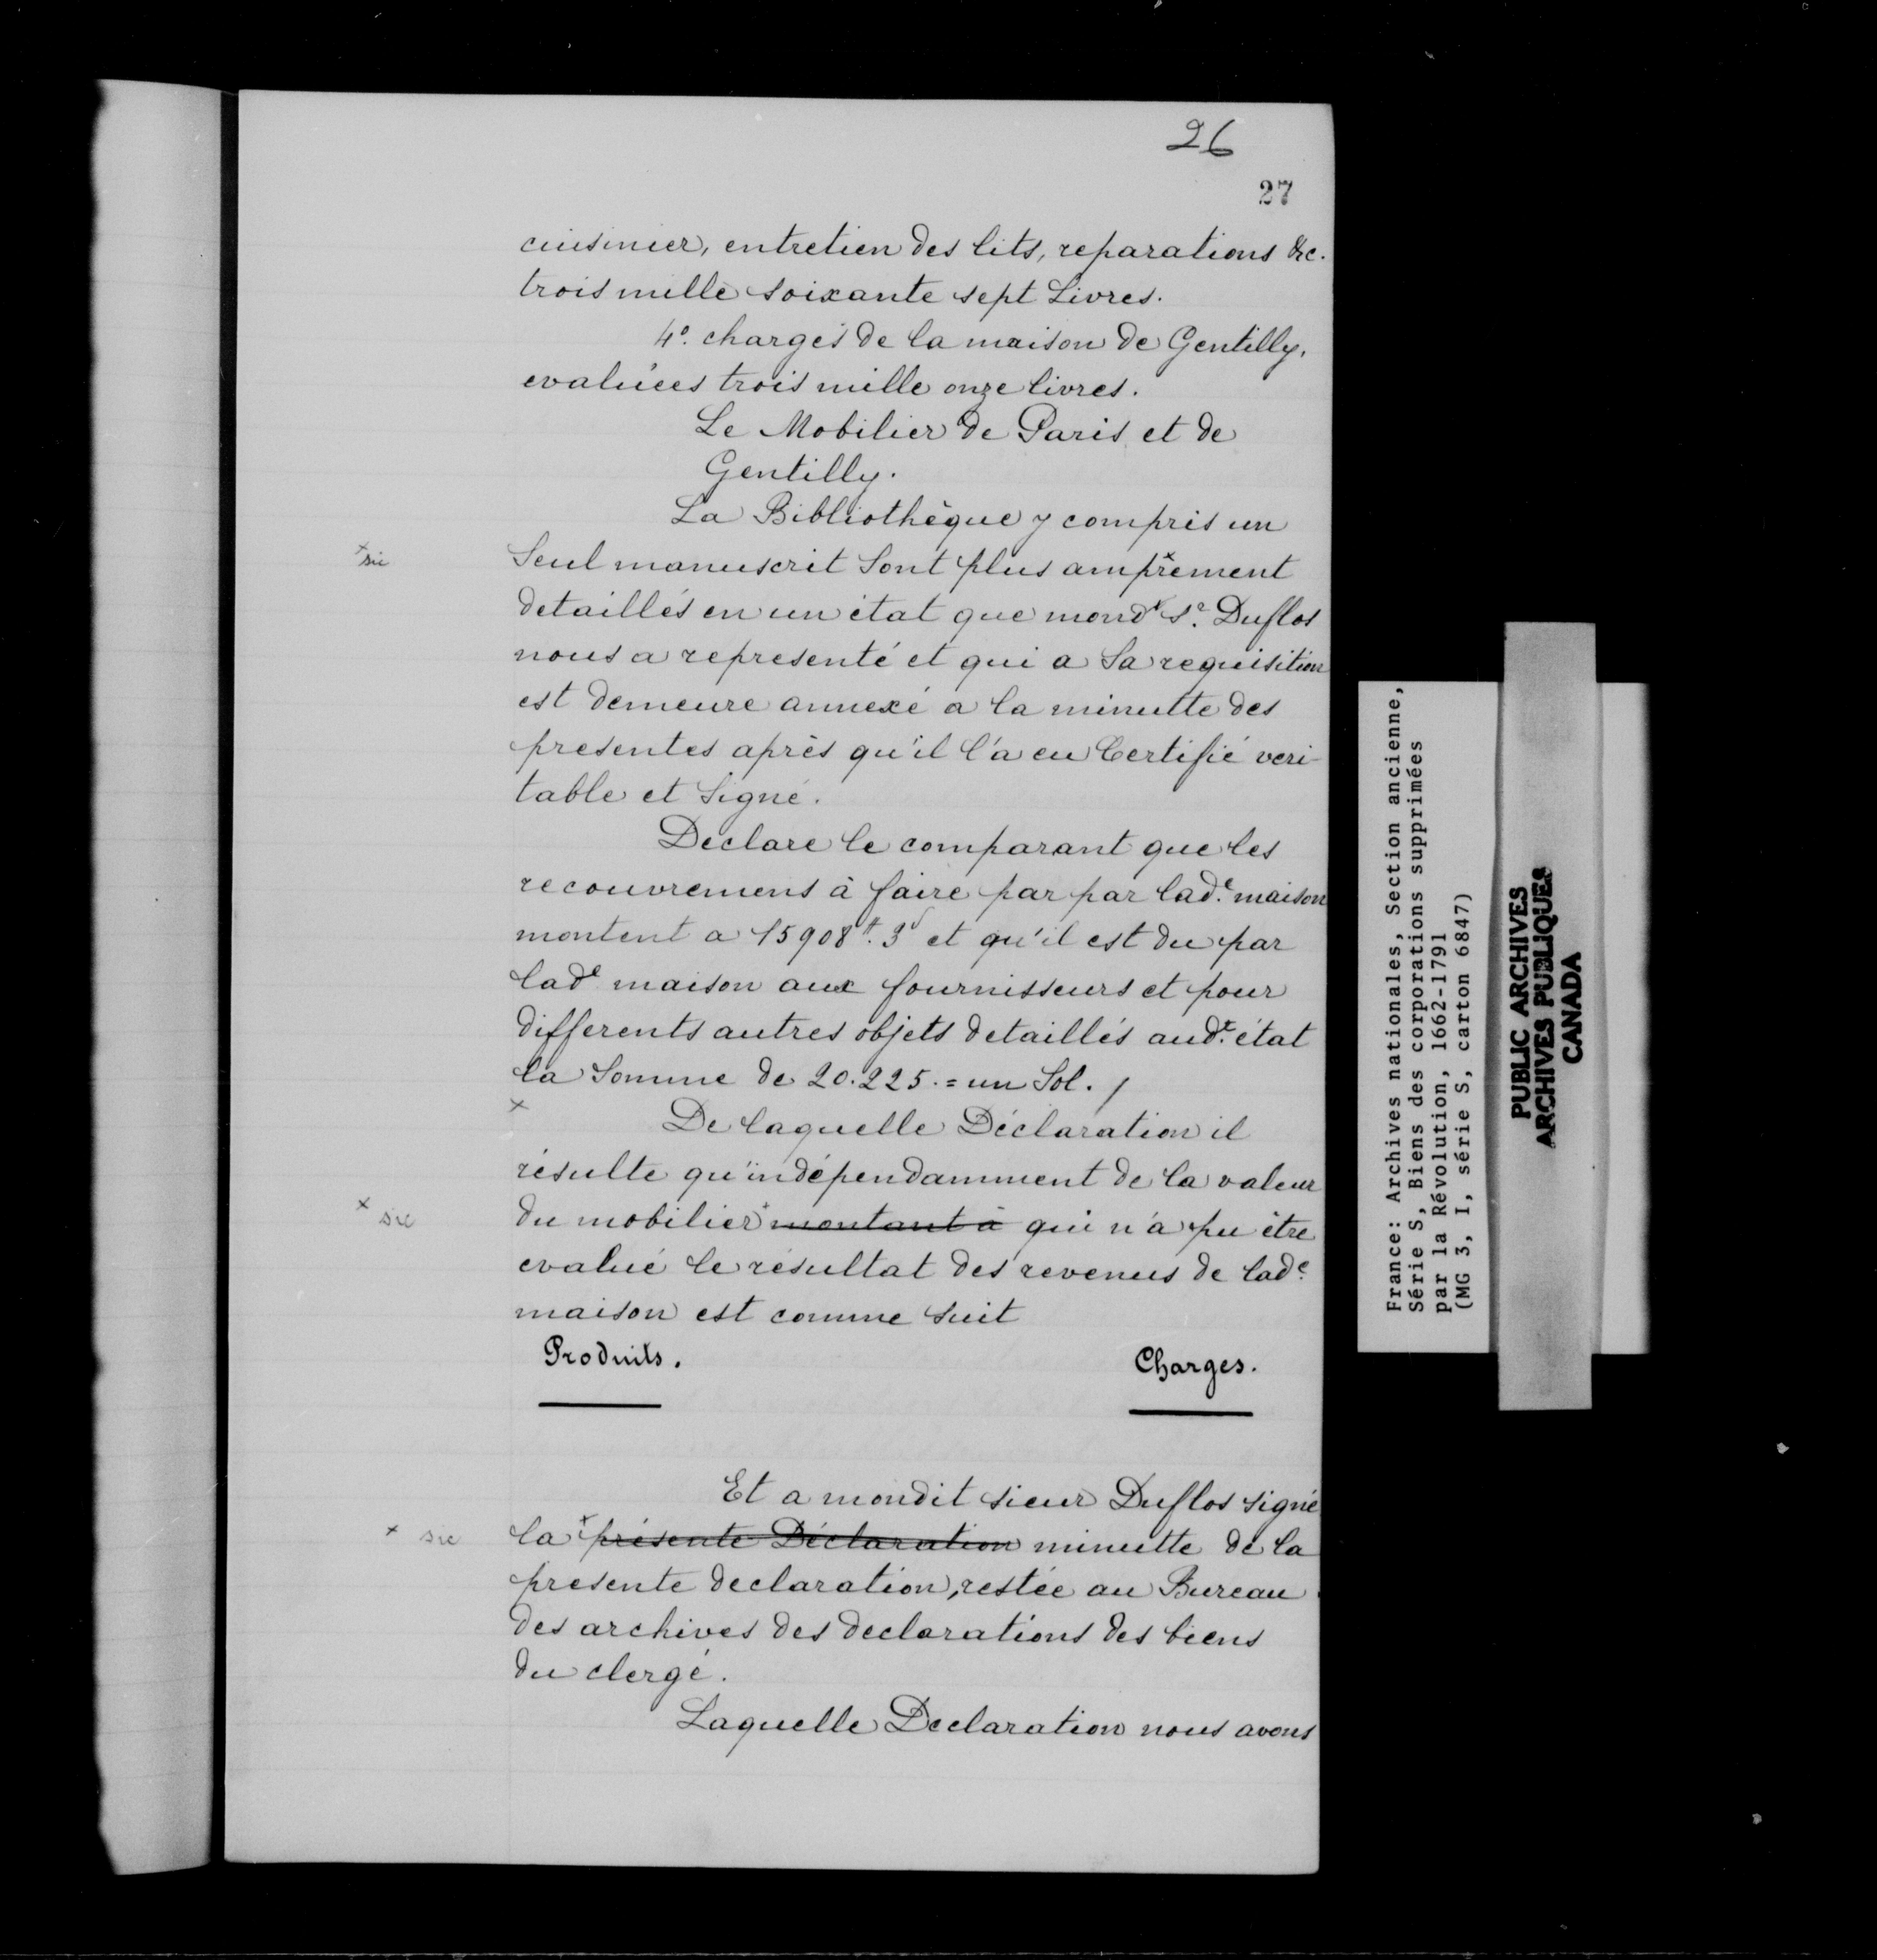 26
27
cuisinier, entretien des lits, reparations &c.
trois mille soixante sept Livres.
4º. charges de la maison de Gentilly,
evaluées trois mille onze livres.
Le Mobilier de Paris et de
Gentilly.
La Bibliothèque y compris un
x sic
Seul manuscrit Sont plus amprement x
detaillés en un état que mondt sr. Duflos
nous a representé et qui a Sa requisition
est demeure annexé a la minutte des
presentes après qu'il l'a eu Certifié veri-
table et Signé.
Declare le comparant que les
recouvremens à faire par par lade. maison
montent a 15908tt. 3s et qu'il est du par
lade maison aux fournisseurs et pour
differents autres objets detaillés audt. état
la Somme de 20.225.= un Sol. /
x
De laquelle Déclaration il
résulte qu'indépendamment de la valeur
x sic
du mobilier x montant à qui n'a pu être
evalué le résultat des revenus de lade.
maison est comme suit
Produits.
Charges.
Et a mondit sieur Duflos signé
x sic
la x présente Déclaration minutte de la
presente declaration, restée au Bureau
des archives des declarations des biens
du clergé.
Laquelle Declaration nous avons
France: Archives nationales, Section ancienne,
Série S, Biens des corporations supprimées
par la Révolution, 1662-1791
(MG 3, I, série S, carton 6847)
PUBLIC ARCHIVES
ARCHIVES PUBLIQUES
CANADA